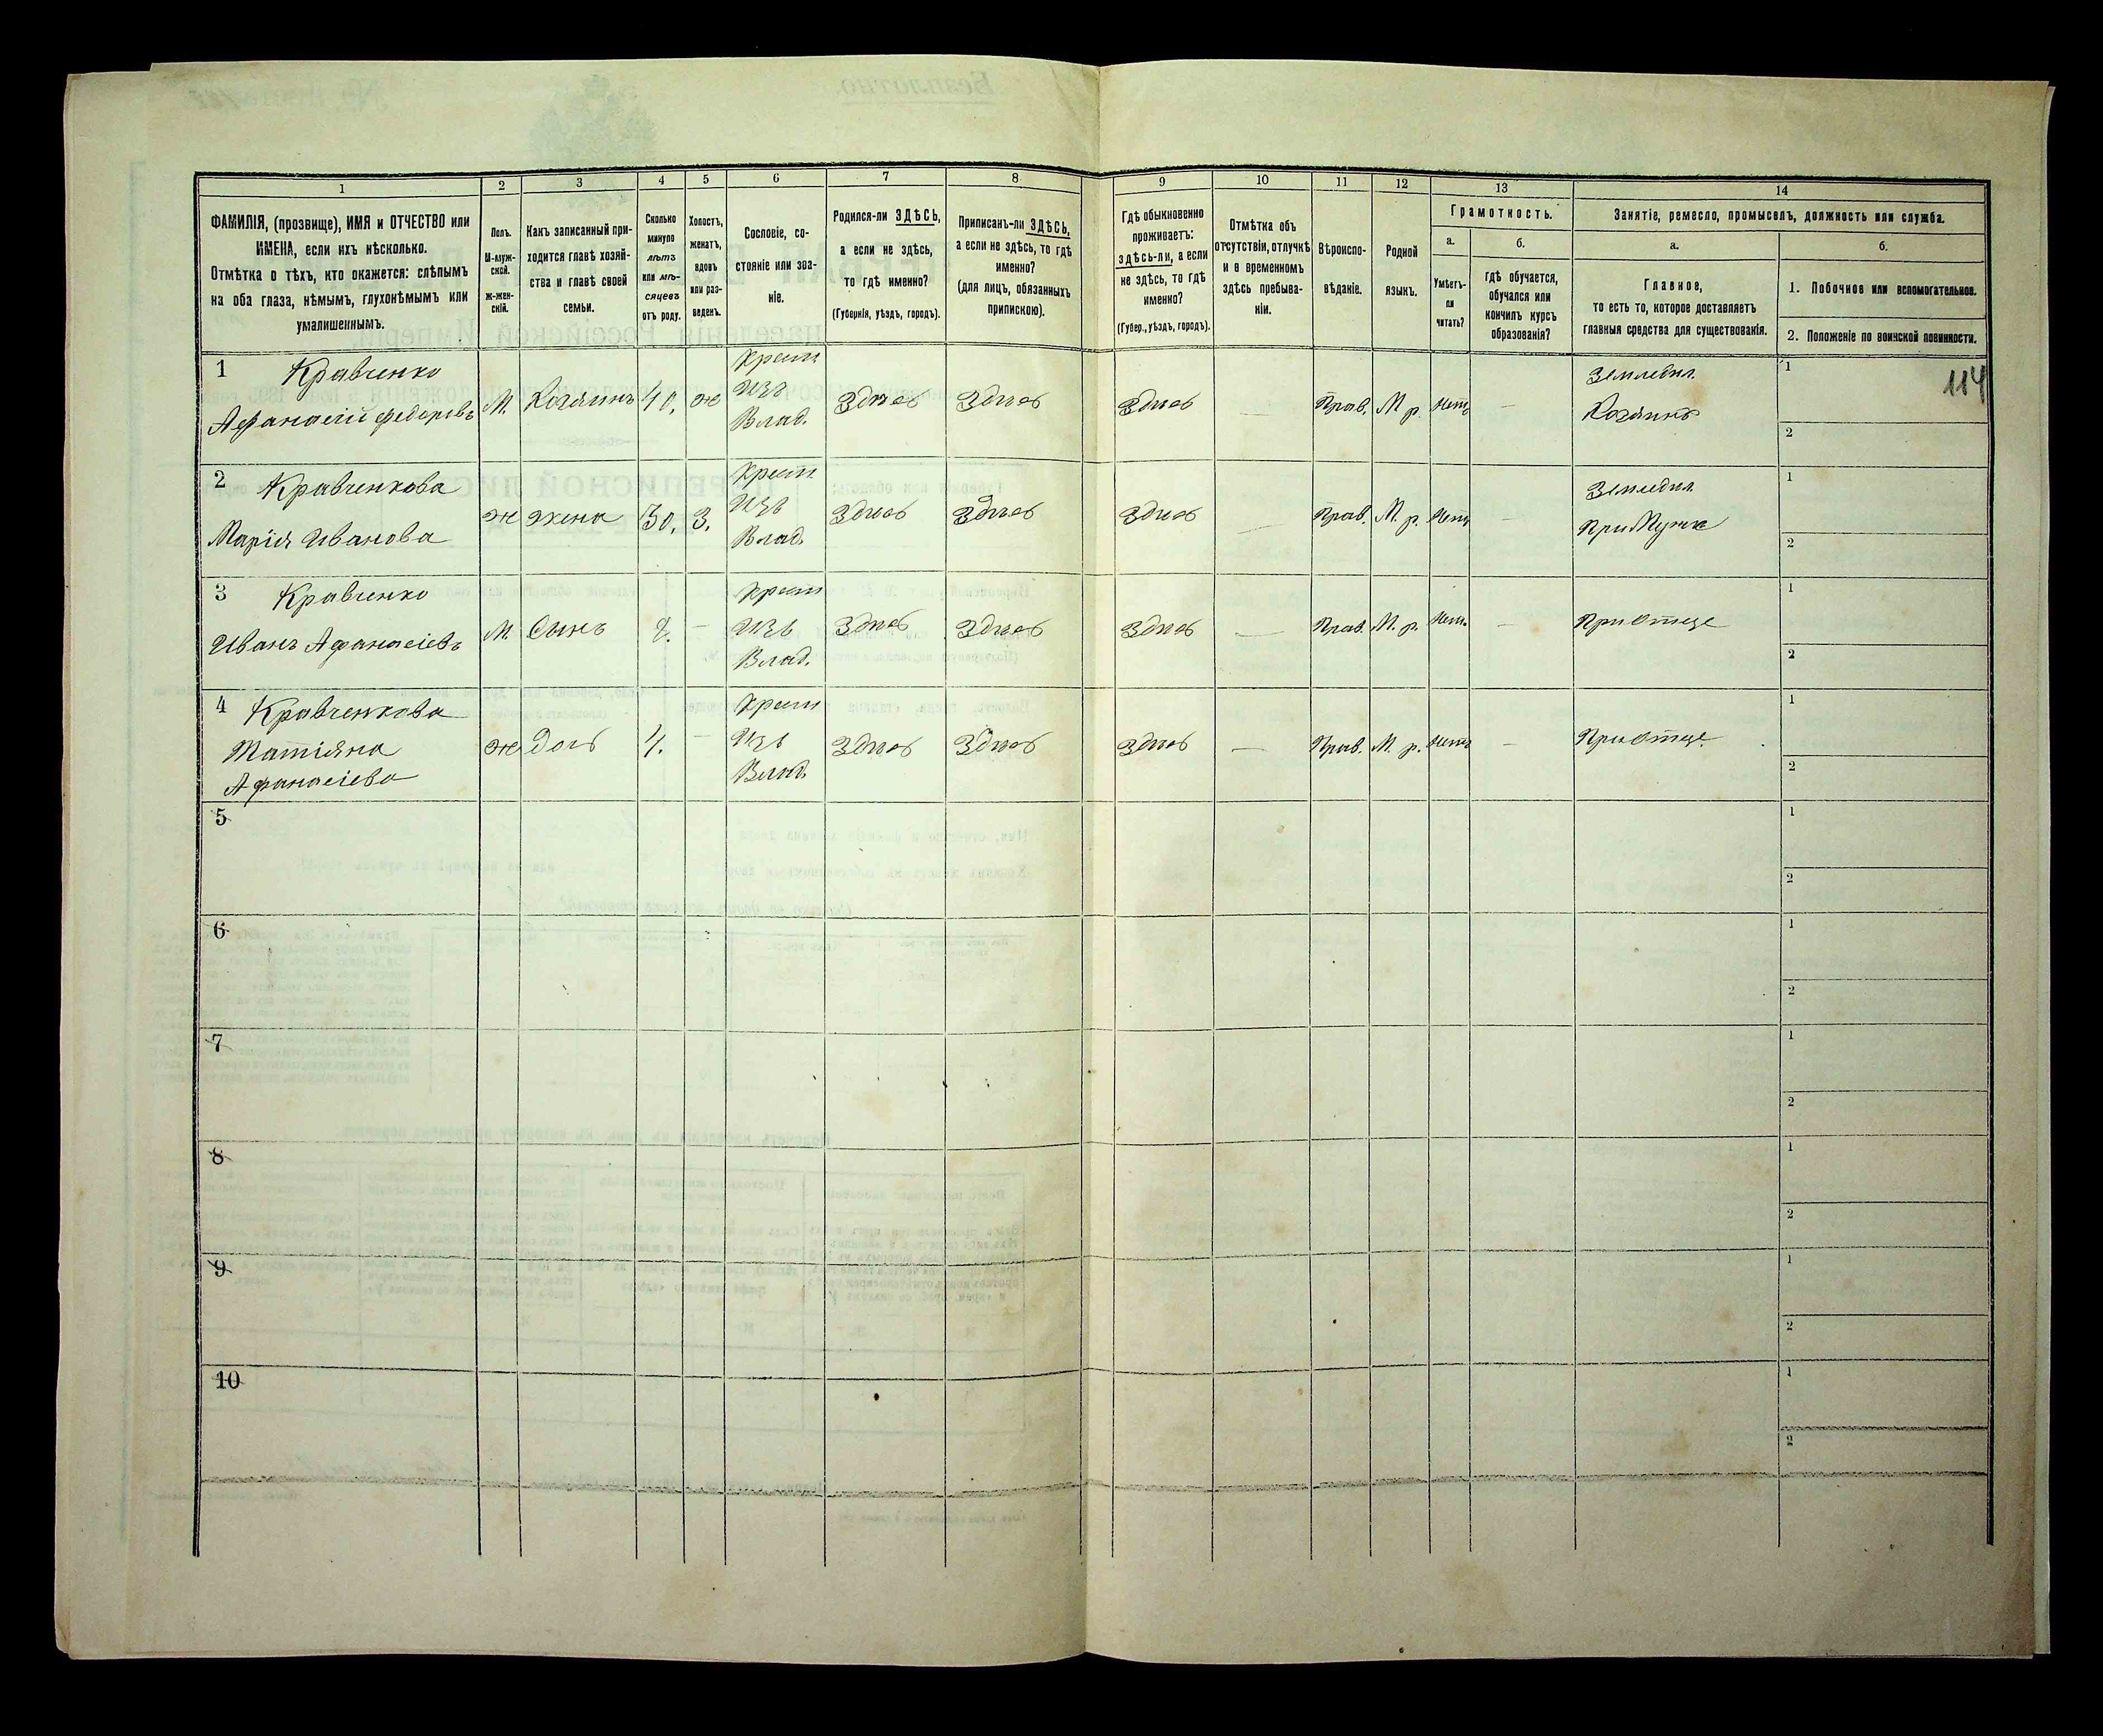 1
2
3
4
5
6
7
8
9
10
11
12
13
14
ФАМИЛІЯ, (прозвище), ИМЯ и ОТЧЕСТВО или
ИМЕНА, если ихъ нѣсколько.
Отмѣтка о тѣхъ, кто окажется: слѣпымъ
на оба глаза, нѣмымъ, глухонѣмымъ или
умалишеннымъ.
Полъ.
М-муж-
ской.
Ж-жен-
скій.
Какъ записанный при-
ходится главѣ хозяй-
ства и главѣ своей
семьи.
Сколько
минуло
лѣтъ
или мѣ-
сяцевъ
отъ роду.
Холостъ,
женатъ,
вдовъ
или раз-
веденъ.
Сословіе, со-
стояніе или зва-
ніе.
Родился-ли ЗДѢСЬ,
а если не здѣсь,
то гдѣ именно?
(Губернія, уѣздъ, городъ).
Приписанъ-ли ЗДѢСЬ,
а если не здѣсь, то гдѣ
именно?
(для лицъ, обязанныхъ
припискою).
Гдѣ обыкновенно
проживаетъ:
здѣсь-ли, а если
не здѣсь, то гдѣ
именно?
(Губер., уѣздъ, городъ).
Отмѣтка объ
отсутствіи, отлучкѣ
и о временномъ
здѣсь пребыва-
ніи.
Вѣроиспо-
вѣданіе.
Родной
языкъ.
Грамотность.
а.
Умѣетъ-
ли
читать?
б.
гдѣ обучается,
обучался или
кончилъ курсъ
образованія?
Занятіе, ремесло, промыселъ, должность или служба.
а.
Главное,
то есть то, которое доставляетъ
главныя средства для существованія.
б.
1. Побочное или вспомогательное.
2. Положеніе по воинской повинности.
114
1 Кравченко
Афанасій Федоровъ
М.
Хозяинъ
40.
ж
Крест
изъ
Влад.
Здѣсь
Здѣсь
Здѣсь
—
Прав.
М р.
Нетъ
—
Земледѣл.
Хозяинъ
1
2
2 Кравченкова
Марія Иванова
ж
жена
30.
З.
Крест
изъ
Влад.
Здѣсь
Здѣсь
Здѣсь
—
Прав.
М. р.
Нетъ
—
Земледѣл.
При Мужѣ
1
2
3 Кравченко
Иванъ Афанасіевъ
М.
Сынъ
—
Крест
изъ
Влад.
Здѣсь
Здѣсь
Здѣсь
—
Прав.
М. р.
Нетъ
—
При Отце
1
2
4 Кравченкова
Татіяна
Афанасіева
ж
Дочь
4.
—
Крест
изъ
Влад.
Здѣсь
Здѣсь
Здѣсь
—
Прав.
М. р.
Нетъ
—
При Отце.
1
2
5
1
2
6
1
2
7
1
2
8
1
2
9
1
2
10
1
2